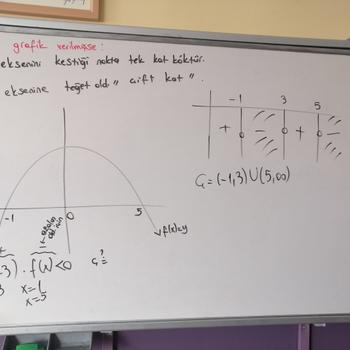 grafik verilmişse:
eksenini kestiği nokta tek kat köktür.
eksenine teğet old. " çift kat".
-1 0 5
f(x)=y
3). f(x)<0 Ç=?
3 x=-1
x=5
-1 3 5
+ +
Ç=(-1,3)U(5,∞)